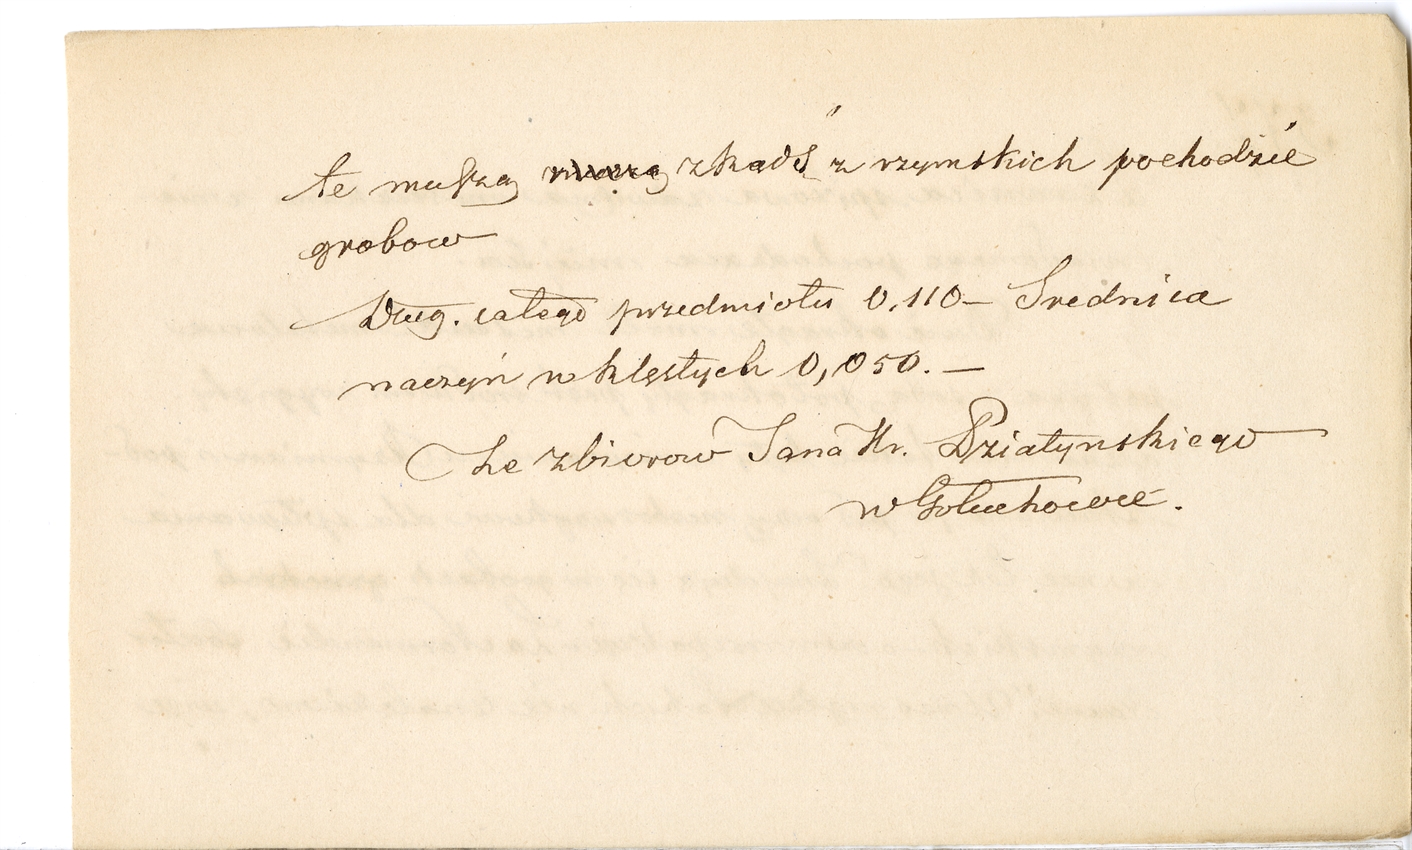 te muszą zkądś z rzymskich pochodzić
grobow
Dług. całego przedmiotu 0.110 — Srednica
naczyń wklęsłych 0,050. —
Ze zbiorow Jana Hr. Działynskiego
w Gołuchowie.